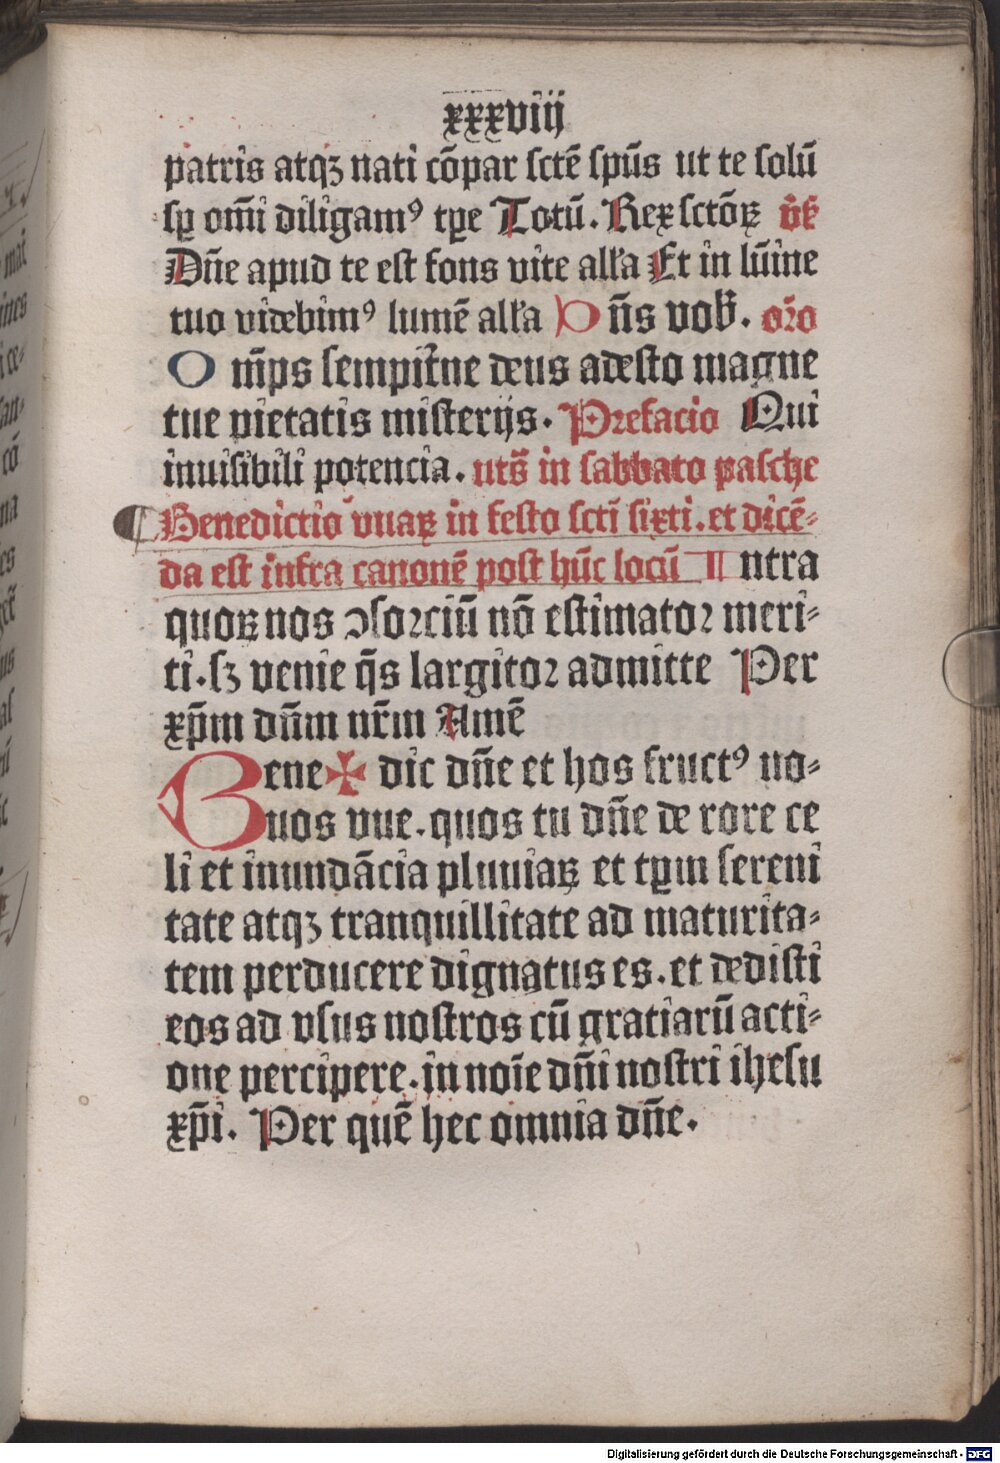 xxxviij
patris atqꝫ nati cōpar sctē spūs ut te solū
sꝑ om̄i diligamꝰ tꝑe Totū. Rex sctōꝝ v̄s̄
Dn̄e apud te est fons vite all'a Et in lūine
tuo videbimꝰ lumē all'a Dn̄s vob̄. or̄o
Om̄ps sempit̄ne deus adesto magne
tue pietatis misterijs. Prefacio Qui
inuisibili potencia. uts̄ in sabbato pasche
Benedictio vuaꝝ in festo scti sixti. et dicē⸗
da est infra canonē post hūc locū Intra
quoꝝ nos ↄsorciū nō estimator meri⸗
ti. sꝫ venie q̄s largitor admitte Per
xp̄m dn̄m nr̄m Amē
Bene✠dic dn̄e et hos fructꝰ no⸗
uos vue. quos tu dn̄e de rore ce
li et inundācia pluuiaꝝ et tꝑm sereni
tate atqꝫ tranquillitate ad maturita⸗
tem perducere dignatus es. et dedisti
eos ad vsus nostros cū gratiarū acti⸗
one percipere. in noīe dn̄i nostri ihesu
xp̄i. Per quē hec omnia dn̄e.
Digitalisierung gefördert durch die Deutsche Forschungsgemeinschaft - DFG